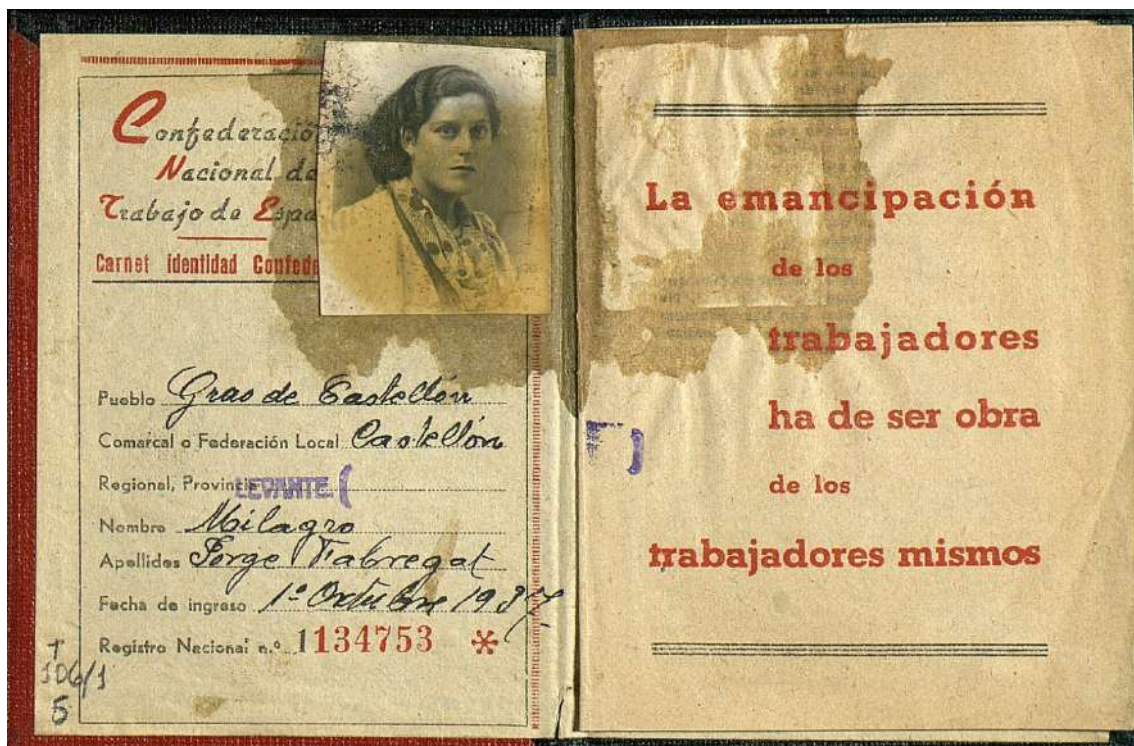 Confederació
Nacional de
Trabajo de Espa
Carnet identidad Confede
Pueblo Grao de Castellón
Comarcal o Federación Local Castellón
Regional, Provincia LEVANTE (
Nombre Milagro
Apellidos Jorge Fabregat
Fecha de ingreso 1º Octubre 1937
Registro Nacional n.º 1134753 *
106/1
5
La emancipación
de los
trabajadores
ha de ser obra
de los
trabajadores mismos